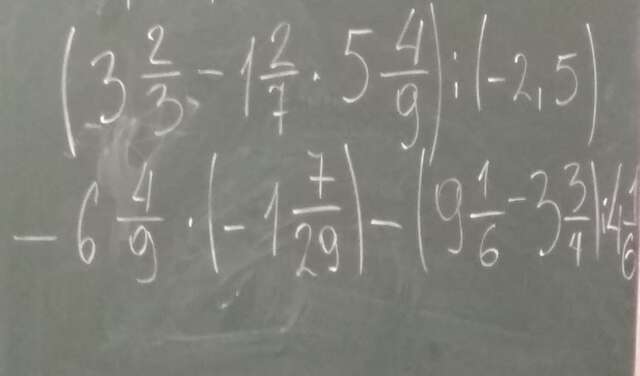 (3 2/3 - 1 2/7 · 5 4/9) : (-2,5)
- 6 4/9 · (-1 7/29) - (9 1/6 - 3 3/4) : 4 1/6